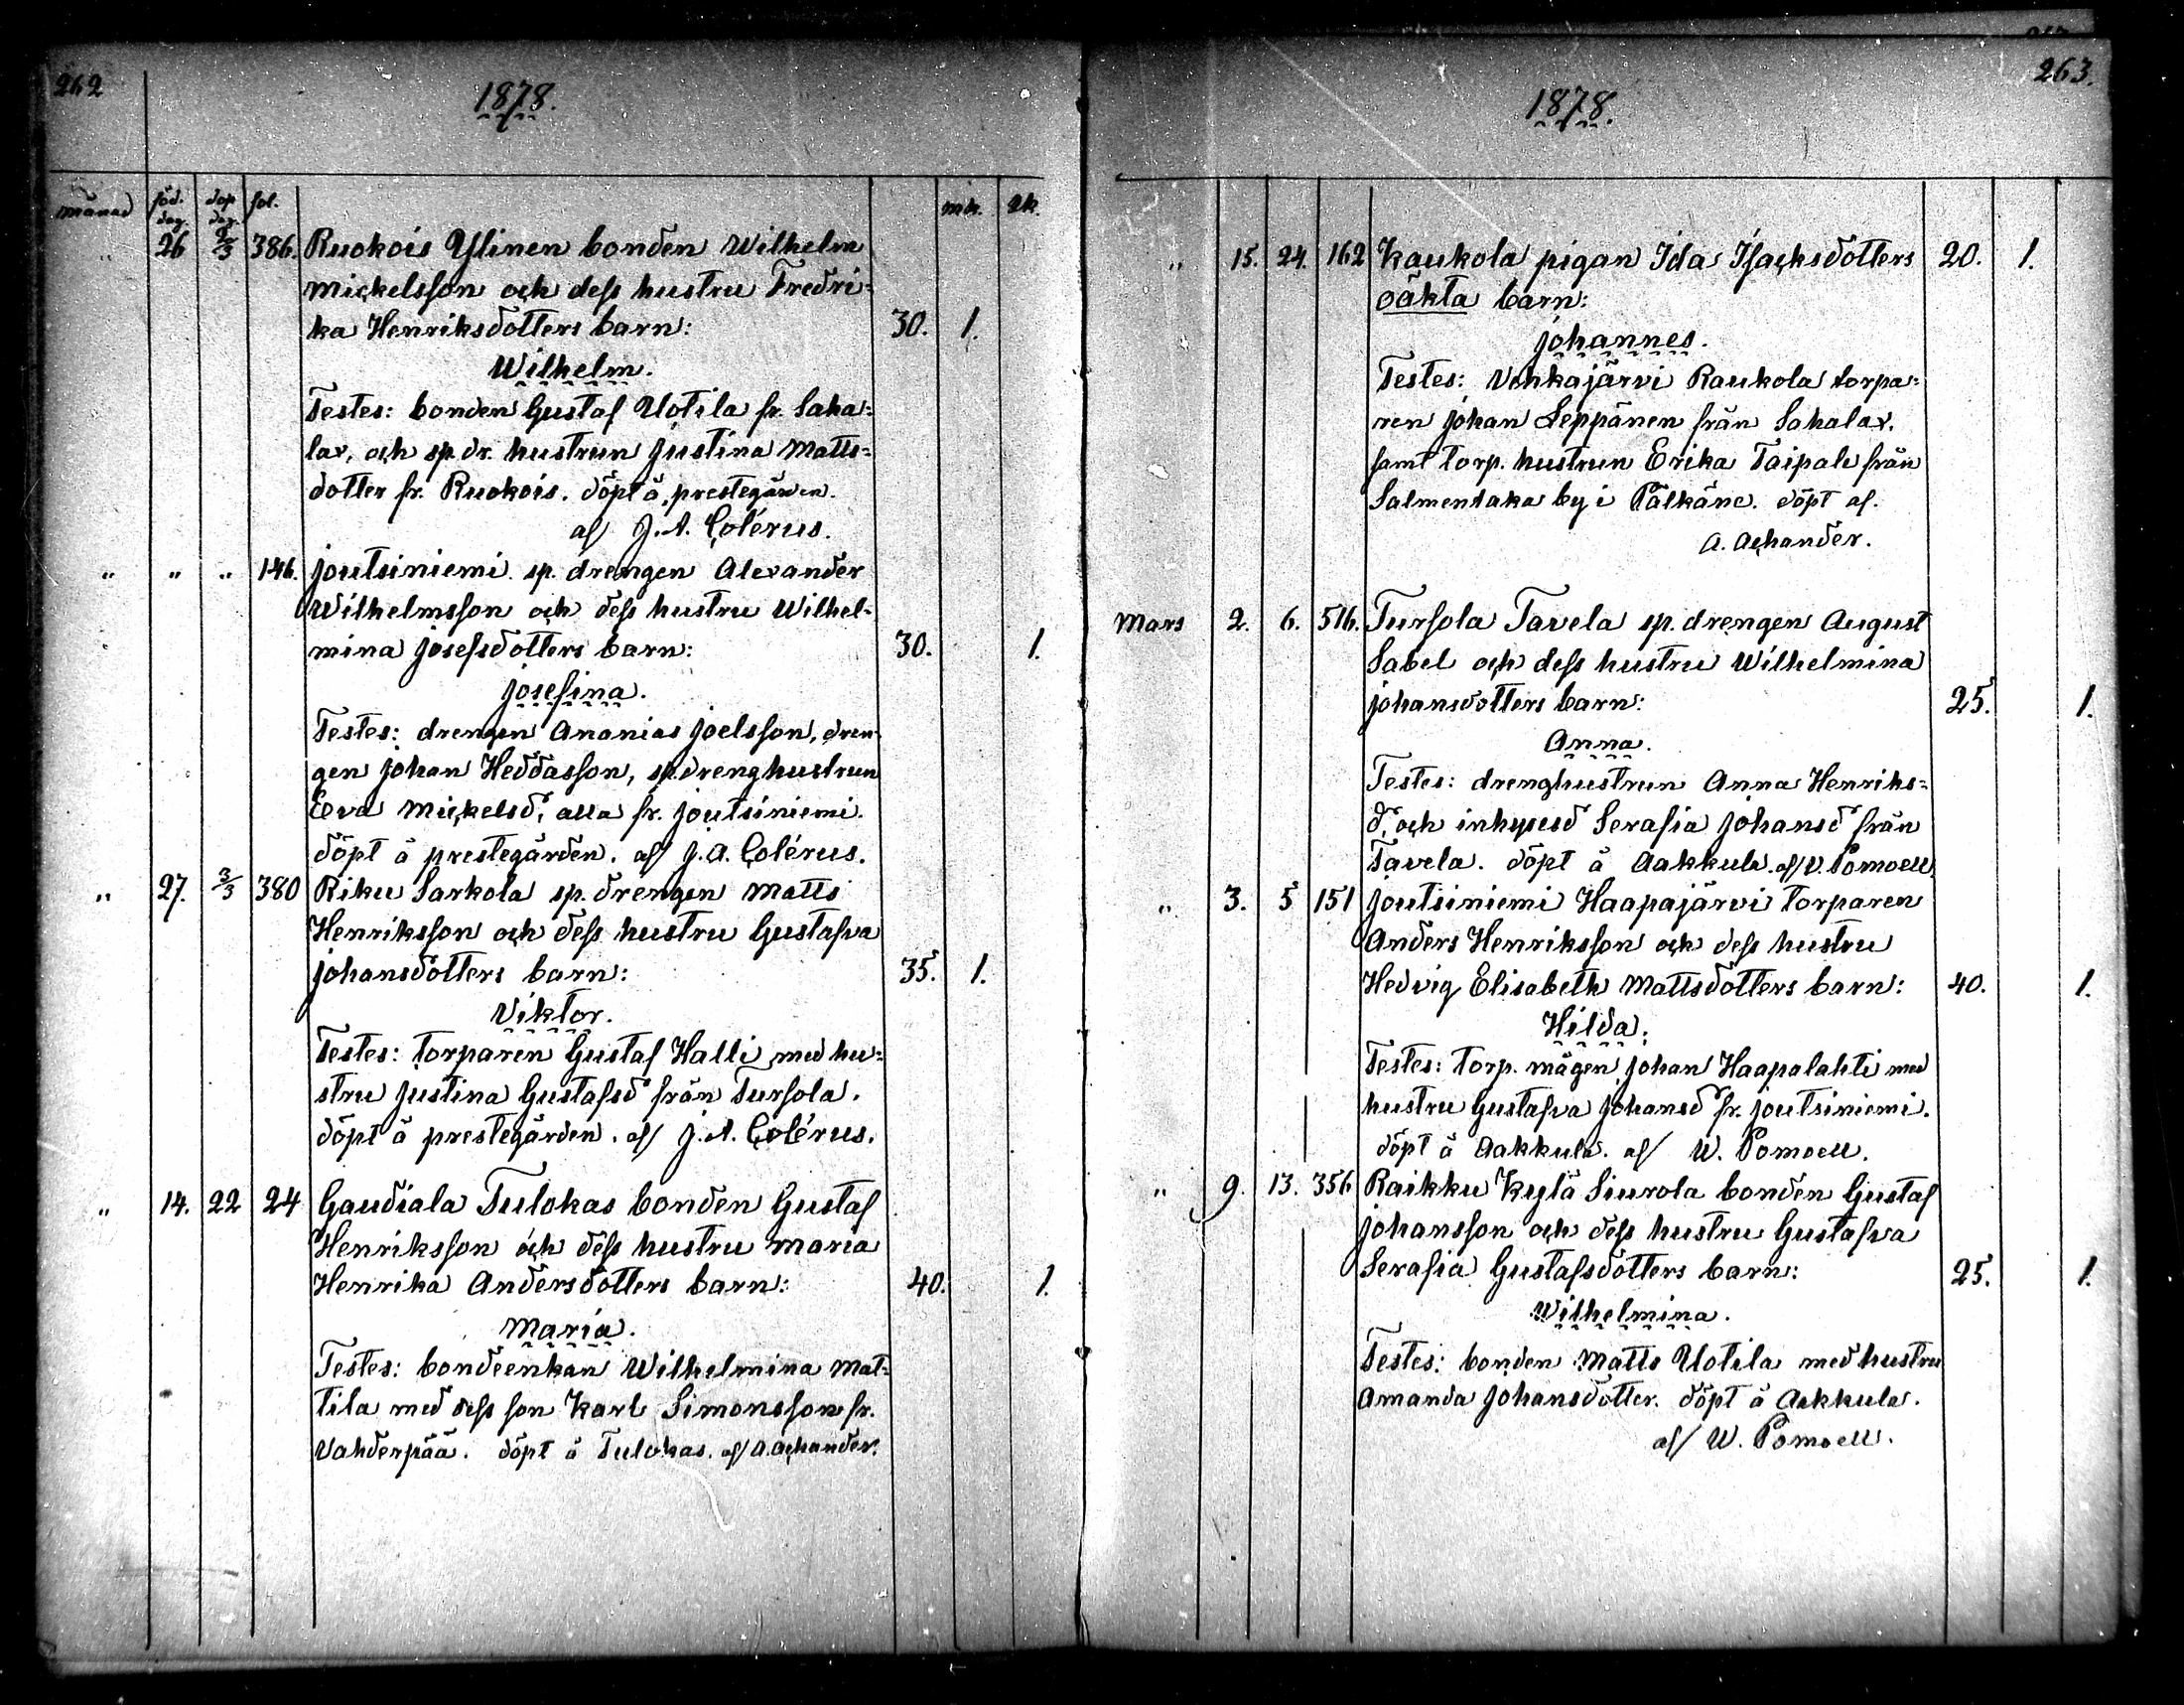 262
1878.
månad föd. dag. dop dag. fol. mk. qk.
" 26 2/3 386. Ruokois Ylinen bonden Wilhelm
Mickelsson och dess hustru Fredri-
ka Henriksdotters barn: 30. 1.
Wilhelm.
Testes: bonden Gustaf Uotila fr. Saha-
lax, och sp. dr. hustrun Justina Matts-
dotter fr. Ruokois. döpt å prestegården.
af J. A. Colérus.
" " " 146. Joutsiniemi sp. drengen Alexander
Wilhelmsson och dess hustru Wilhel-
mina Josefsdotters barn: 30. 1.
Josefina.
Testes: drengen Ananias Joelsson, dren-
gen Johan Heddasson, sp. drenghustrun
Eva Mickelsd. alla fr. Joutsiniemi.
döpt å prestegården. af J. A. Colérus.
" 27. 3/3 380 Riku Sarkola sp. drengen Matts
Henriksson och dess hustru Gustafva
Johansdotters barn: 35. 1.
Viktor.
Testes: torparen Gustaf Halli med hu-
stru Justina Gustafsd från Tursola.
döpt å prestegården. af J. A. Colérus.
" 14. 22 24 Gaudiala Tulokas bonden Gustaf
Henriksson och dess hustru Maria
Henrika Andersdotters barn: 40. 1.
Maria.
Testes: bondeenkan Wilhelmina Mat-
tila med dess son Karl Simonsson fr.
Vahderpää. döpt å Tulokas. af A. Achander.
263.
1878.
" 15. 24. 162 Kaukola pigan Ida Isachsdotters 20. 1.
oäkta barn:
Johannes.
Testes: Vehkajärvi Raukola torpa-
ren Johan Leppänen från Sahalax.
samt torp. hustrun Erika Taipale från
Salmentaka by i Pälkäne. döpt af.
A. Achander.
Mars 2. 6. 516. Tursola Tavela sp. drengen August
Sabel och dess hustru Wilhelmina
Johansdotters barn: 25. 1.
Anna.
Testes: drenghustrun Anna Henriks-
d. och inhysesd Serafia Johansd från
Tavela. döpt å Aakkula. af V. Pomoell.
" 3. 5 151 Joutsiniemi Haapajärvi torparen
Anders Henriksson och dess hustru
Hedvig Elisabeth Mattsdotters barn: 40. 1.
Hilda.
Testes: torp. mågen Johan Haapalahti med
hustru Gustafva Johansd fr. Joutsiniemi.
döpt å Aakkula. af W. Pomoell.
" 9. 13. 356 Raikku Kylä Siurola bonden Gustaf
Johansson och dess hustru Gustafva
Serafia Gustafsdotters barn: 25. 1.
Wilhelmina.
Testes: bonden Matts Uotila med hustru
Amanda Johansdotter. döpt å Aakkula.
af W. Pomoell.